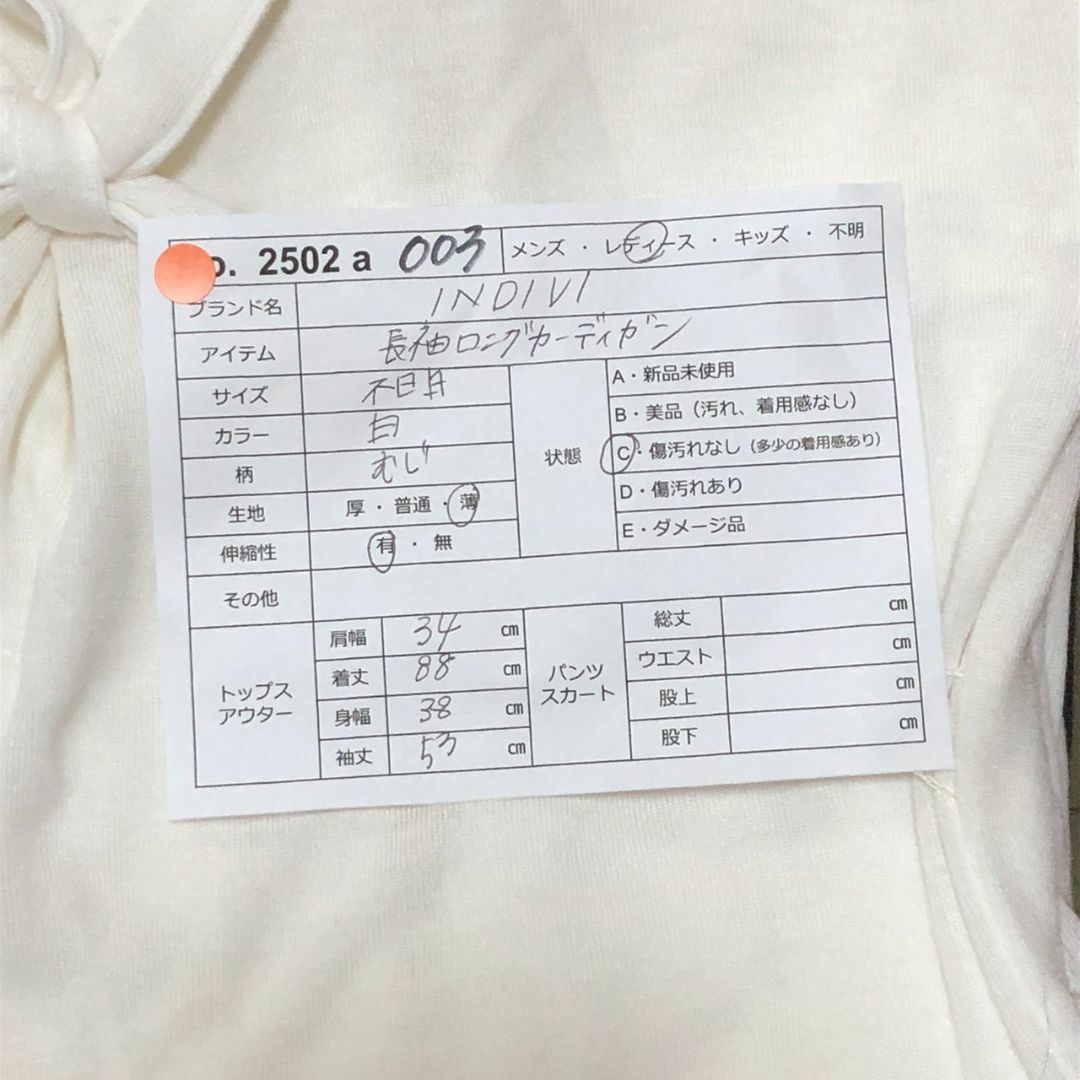 o. 2502 a 003 メンズ ・ レディース ・ キッズ ・ 不明
ブランド名 INDIVI
アイテム 長袖ロングカーディガン
サイズ 不明
カラー 白
柄 むじ
生地 厚 ・ 普通 ・ 薄
伸縮性 有 ・ 無
状態
A・新品未使用
B・美品（汚れ、着用感なし）
C・傷汚れなし（多少の着用感あり）
D・傷汚れあり
E・ダメージ品
その他
トップス
アウター
肩幅 34 cm
着丈 88 cm
身幅 38 cm
袖丈 53 cm
パンツ
スカート
総丈 cm
ウエスト cm
股上 cm
股下 cm